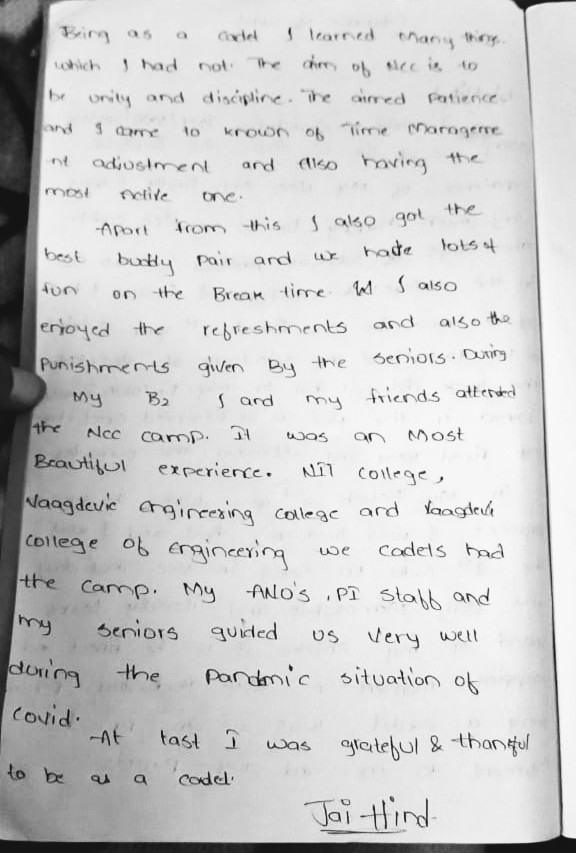 Being as a cadet I learned many things.
which I had not. The aim of Ncc is to
be unity and discipline. The aimed Patience
and I came to known of Time Manageme
nt adjustment and also having the
most Active one.
Apart from this I also got the
best buddy pair and we hade lots of
fun on the Break time. W I also
enjoyed the refreshments and also the
Punishments given By the seniors. During
My B2 I and my friends attended
the Ncc camp. It was an Most
Beautiful experience. NIT college,
Vaagdevic engineering college and Vaagdevi
college of Engineering we cadets had
the camp. My ANO's, PI Staff and
my seniors guided us very well
during the pandmic situation of
covid.
At last I was grateful & thankful
to be as a cadet.
Jai Hind